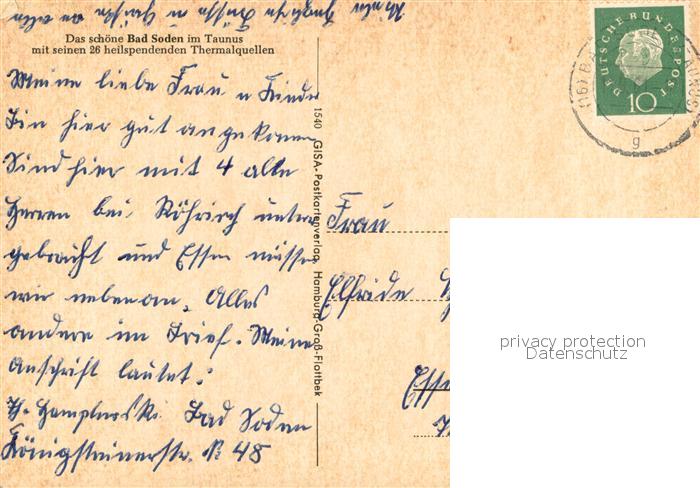 Das schöne Bad Soden im Taunus
mit seinen 26 heilspendenden Thermalquellen
Meine liebe Frau u Kinder
Bin hier gut angekommen
Sind hier mit 4 alte
Herren bei Röhrich unter
gebracht und Essen müssen
wir nebenan. Alles
andere im Brief. Meine
Anschrift lautet:
Bad Soden
Königsteinerstr. N 48
1540 GISA-Postkartenverlag, Hamburg-Groß-Flottbek
DEUTSCHE BUNDESPOST
10
g
Frau
Elfride
privacy protection
Datenschutz